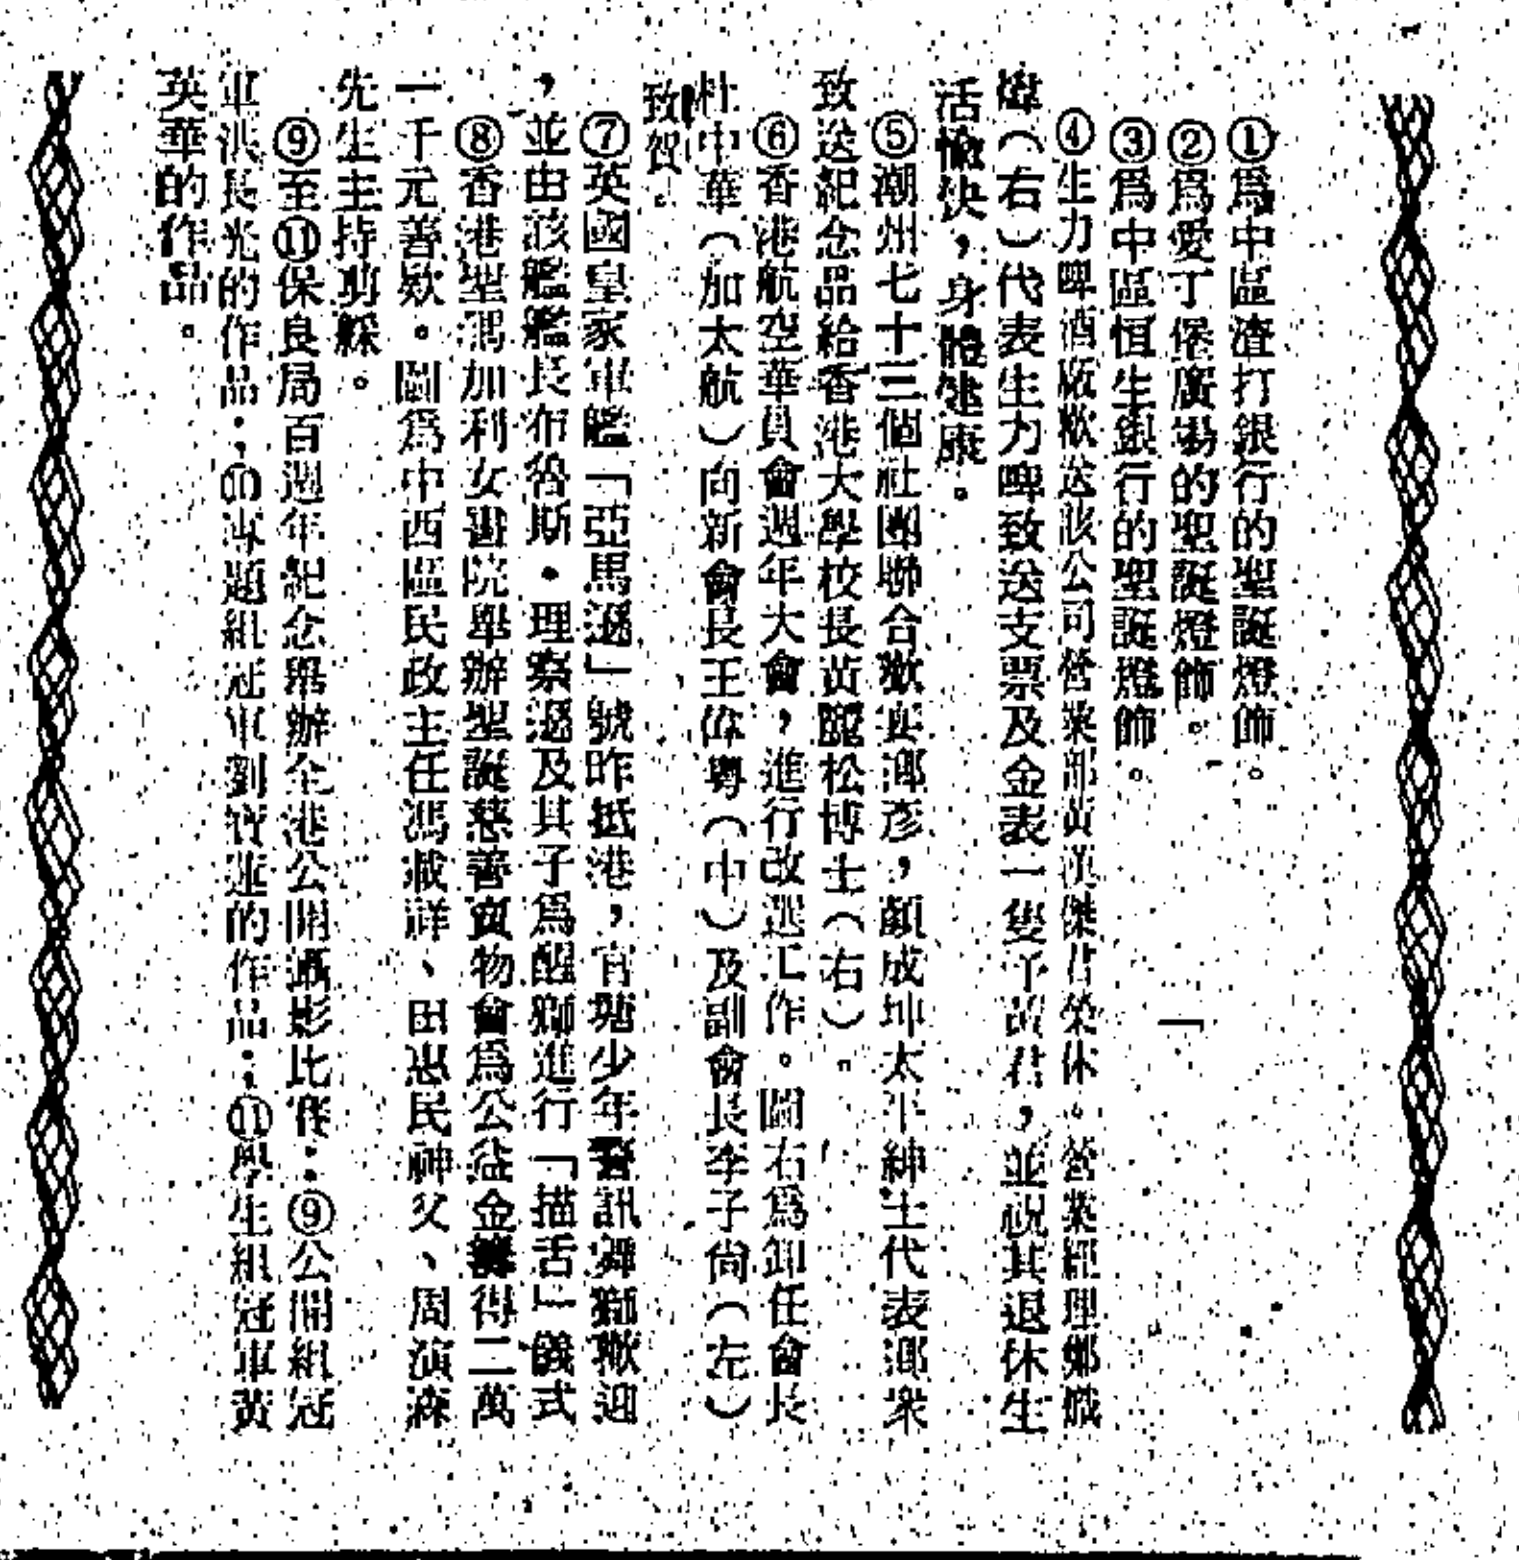 ①爲中區渣打銀行的聖誕燈飾。
②爲愛丁堡廣場的聖誕燈飾。
③爲中區恒生銀行的聖誕燈飾。
④生力啤酒廠歡送該公司營業部黃漢傑君榮休。營業經理鄭熾
煒（右）代表生力啤致送支票及金表一隻予黃君，並祝其退休生
活愉快，身體健康。
⑤潮州七十三個社團聯合歡宴鄞彥，顏成坤太平紳士代表鄞衆
致送紀念品給香港大學校長黃麗松博士（右）。
⑥香港航空華員會週年大會，進行改選工作。圖右爲卸任會長
杜中華（加太航）向新會長王偉粵（中）及副會長李子尙（左）
致賀。
⑦英國皇家軍艦「亞馬遜」號昨抵港，官塘少年警訊舞獅歡迎
，並由該艦艦長布魯斯・理察遜及其子爲醒獅進行「描舌」儀式
⑧香港聖瑪加利女書院舉辦聖誕慈善賣物會爲公益金籌得二萬
一千元善欵。圖爲中西區民政主任馮載祥、田惠民神父、周演森
先生主持剪綵。
⑨至⑪保良局百週年紀念舉辦全港公開攝影比賽：⑨公開組冠
軍洪長光的作品；⑩專題組冠軍劉寶蓮的作品；⑪學生組冠軍黃
英華的作品。